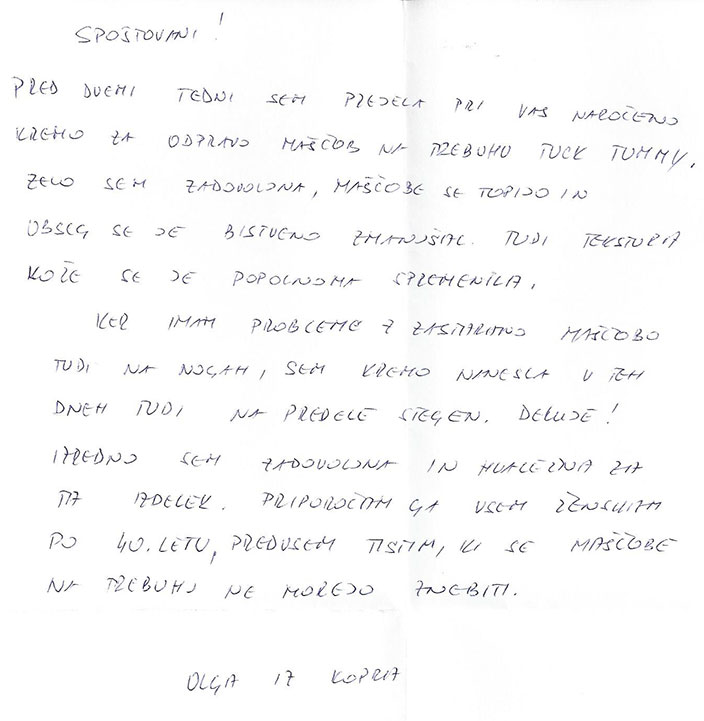 SPOŠTOVANI!
PRED DVEMI TEDNI SEM PREJELA PRI VAS NAROČENO
KREMO ZA ODPRAVO MAŠČOB NA TREBUHU TUCK TUMMY.
ZELO SEM ZADOVOLJNA, MAŠČOBE SE TOPIJO IN
OBSEG SE JE BISTVENO ZMANJŠAL. TUDI TEKSTURA
KOŽE SE JE POPOLNOMA SPREMENILA.
KER IMAM PROBLEME Z ZASTARANO MAŠČOBO
TUDI NA NOGAH, SEM KREMO NANESLA V TEH
DNEH TUDI NA PREDELE STEGEN. DELUJE!
IZREDNO SEM ZADOVOLJNA IN HVALEŽNA ZA
TA IZDELEK. PRIPOROČAM GA VSEM ŽENSKAM
PO 40. LETU, PREDVSEM TISTIM, KI SE MAŠČOBE
NA TREBUHU NE MOREJO ZNEBITI.
OLGA IZ KOPRA